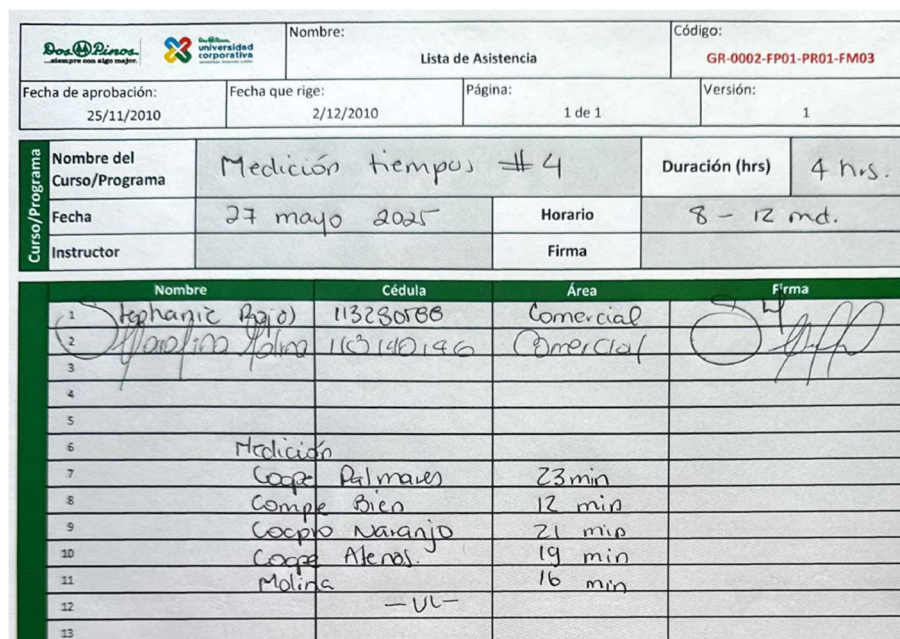 Dos Pinos
...siempre con algo mejor.
Dos Pinos
universidad
corporativa
Nombre:
Lista de Asistencia
Código:
GR-0002-FP01-PR01-FM03
Fecha de aprobación:
25/11/2010
Fecha que rige:
2/12/2010
Página:
1 de 1
Versión:
1
Curso/Programa
Nombre del Curso/Programa Medición tiempos #4 Duración (hrs) 4 hrs.
Fecha 27 mayo 2025 Horario 8 - 12 md.
Instructor Firma
Nombre Cédula Área Firma
1 Stephanie Rojas Comercial
2 Molina 110140146 Comercial
3
4
5
6 Medición
7 Coope Palmares 23 min
8 Compe Bien 12 min
9 Naranjo 21 min
10 Coope Atenas. 19 min
11 Molina 16 min
12 -UL-
13